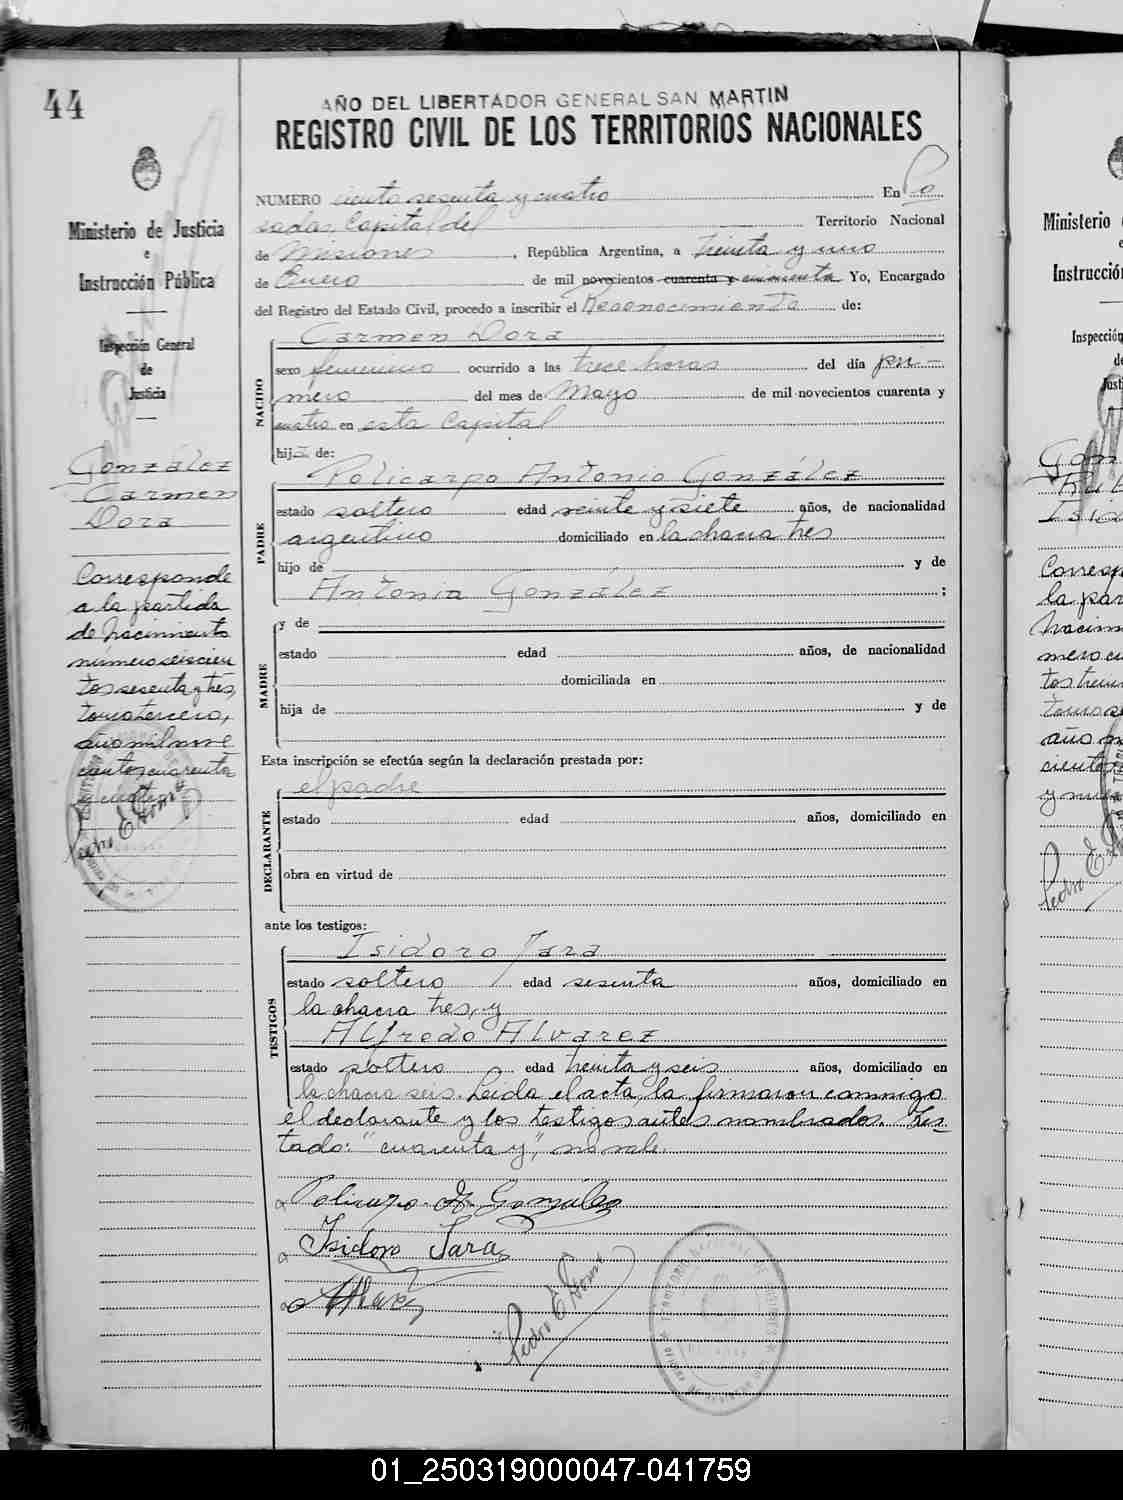 44
AÑO DEL LIBERTADOR GENERAL SAN MARTIN
REGISTRO CIVIL DE LOS TERRITORIOS NACIONALES
Ministerio de Justicia
e
Instrucción Pública
Inspección General
de
Justicia
González
Carmen
Dora
Corresponde
a la partida
de nacimiento
número seiscien
tos sesenta y tres,
tomo tercero,
año mil nove
cientos cuarenta
y cuatro
Pedro E.
NUMERO ciento sesenta y cuatro En Po
sadas, Capital del Territorio Nacional
de Misiones, República Argentina, a treinta y uno
de Enero de mil novecientos cuarenta y cincuenta Yo, Encargado
del Registro del Estado Civil, procedo a inscribir el Reconocimiento de:
NACIDO
Carmen Dora
sexo femenino ocurrido a las trece horas del día pri-
mero del mes de Mayo de mil novecientos cuarenta y
cuatro en esta Capital
hija de:
PADRE
Policarpo Antonio González
estado soltero edad veinte y siete años, de nacionalidad
argentino domiciliado en la chacra tres
hijo de y de
Antonia González ;
MADRE
y de
estado edad años, de nacionalidad
domiciliada en
hija de y de
Esta inscripción se efectúa según la declaración prestada por:
DECLARANTE
el padre
estado edad años, domiciliado en
obra en virtud de
ante los testigos:
TESTIGOS
Isidoro Jara
estado soltero edad sesenta años, domiciliado en
la chacra tres, y
Alfredo Alvarez
estado soltero edad treinta y seis años, domiciliado en
la chacra seis. Leida el acta, la firmaron conmigo
el declarante y los testigos antes nombrados. Tes-
tado: "cuarenta y", no vale.
Policarpo A. González
Isidoro Jara
Pedro E.
Ministerio
Instrucción
Inspección
01_250319000047-041759